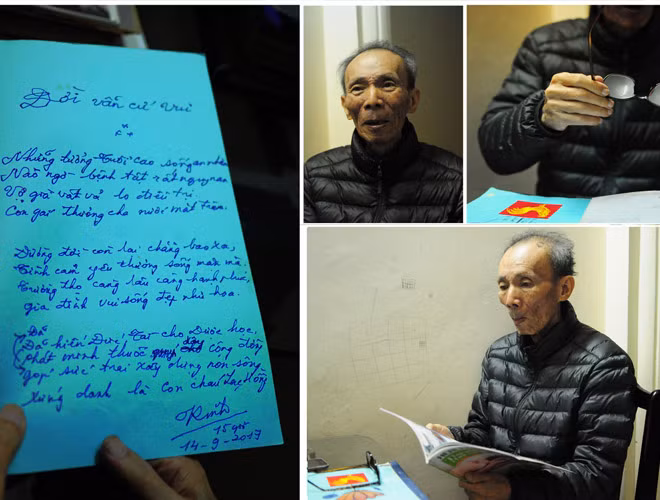 Đời vẫn cứ vui
Những tưởng tuổi cao sống an nhàn
Nào ngờ bệnh tật rất nguy nan
Vợ già vất vả lo điều trị
Con gái thương cha nước mắt tràn.
Đường đời còn lại chẳng bao xa,
Tình cảm yêu thương sống mặn mà.
Trường thọ càng lâu càng hạnh phúc,
gia đình vui sống đẹp như hoa.
Đã
Đã hiến Đức, Tài cho Dược học,
phát minh thuốc cộng đồng
góp sức trai xây dựng non sông
Xứng danh là con cháu Lạc Hồng
15 giờ
14-9-2017